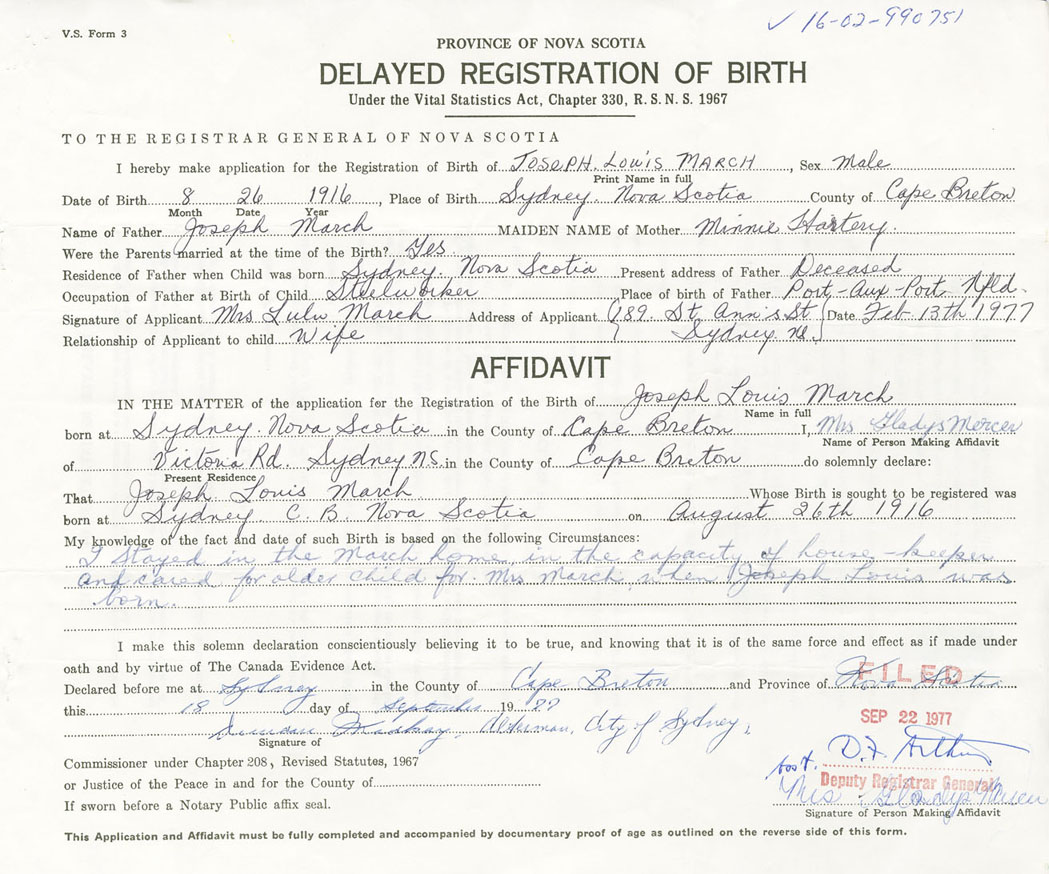 ✓ 16-02-990751
V.S. Form 3
PROVINCE OF NOVA SCOTIA
DELAYED REGISTRATION OF BIRTH
Under the Vital Statistics Act, Chapter 330, R. S. N. S. 1967
TO THE REGISTRAR GENERAL OF NOVA SCOTIA
I hereby make application for the Registration of Birth of JOSEPH. LOUIS MARCH, Sex Male
Print Name in full
Date of Birth 8 26 1916, Place of Birth Sydney. Nova Scotia County of Cape Breton
Month Date Year
Name of Father Joseph March MAIDEN NAME of Mother Minnie Hartery.
Were the Parents married at the time of the Birth? Yes
Residence of Father when Child was born Sydney. Nova Scotia Present address of Father Deceased
Occupation of Father at Birth of Child Steelworker Place of birth of Father Port-Aux-Port Nfld.
Signature of Applicant Mrs Lulu March Address of Applicant 189 St. Ann's St Date Feb 13th 1977
Relationship of Applicant to child Wife Sydney. NS.
AFFIDAVIT
IN THE MATTER of the application for the Registration of the Birth of Joseph Louis March
Name in full
born at Sydney. Nova Scotia in the County of Cape Breton I, Mrs Gladys Mercer
Name of Person Making Affidavit
of Victoria Rd. Sydney N.S. in the County of Cape Breton do solemnly declare:
Present Residence
That Joseph Louis March Whose Birth is sought to be registered was
born at Sydney. C. B. Nova Scotia on August 26th 1916
My knowledge of the fact and date of such Birth is based on the following Circumstances:
I stayed in the March home in the capacity of house-keeper
and cared for older child for Mrs March, when Joseph Louis was
born.
I make this solemn declaration conscientiously believing it to be true, and knowing that it is of the same force and effect as if made under
oath and by virtue of The Canada Evidence Act.
Declared before me at Sydney in the County of Cape Breton and Province of Nova Scotia
FILED
this 18 day of September 1977
SEP 22 1977
Alderman, City of Sydney,
Signature of
Commissioner under Chapter 208, Revised Statutes, 1967
D.F. Arthur
or Justice of the Peace in and for the County of
Deputy Registrar General
Mrs Gladys Mercer
If sworn before a Notary Public affix seal.
Signature of Person Making Affidavit
This Application and Affidavit must be fully completed and accompanied by documentary proof of age as outlined on the reverse side of this form.